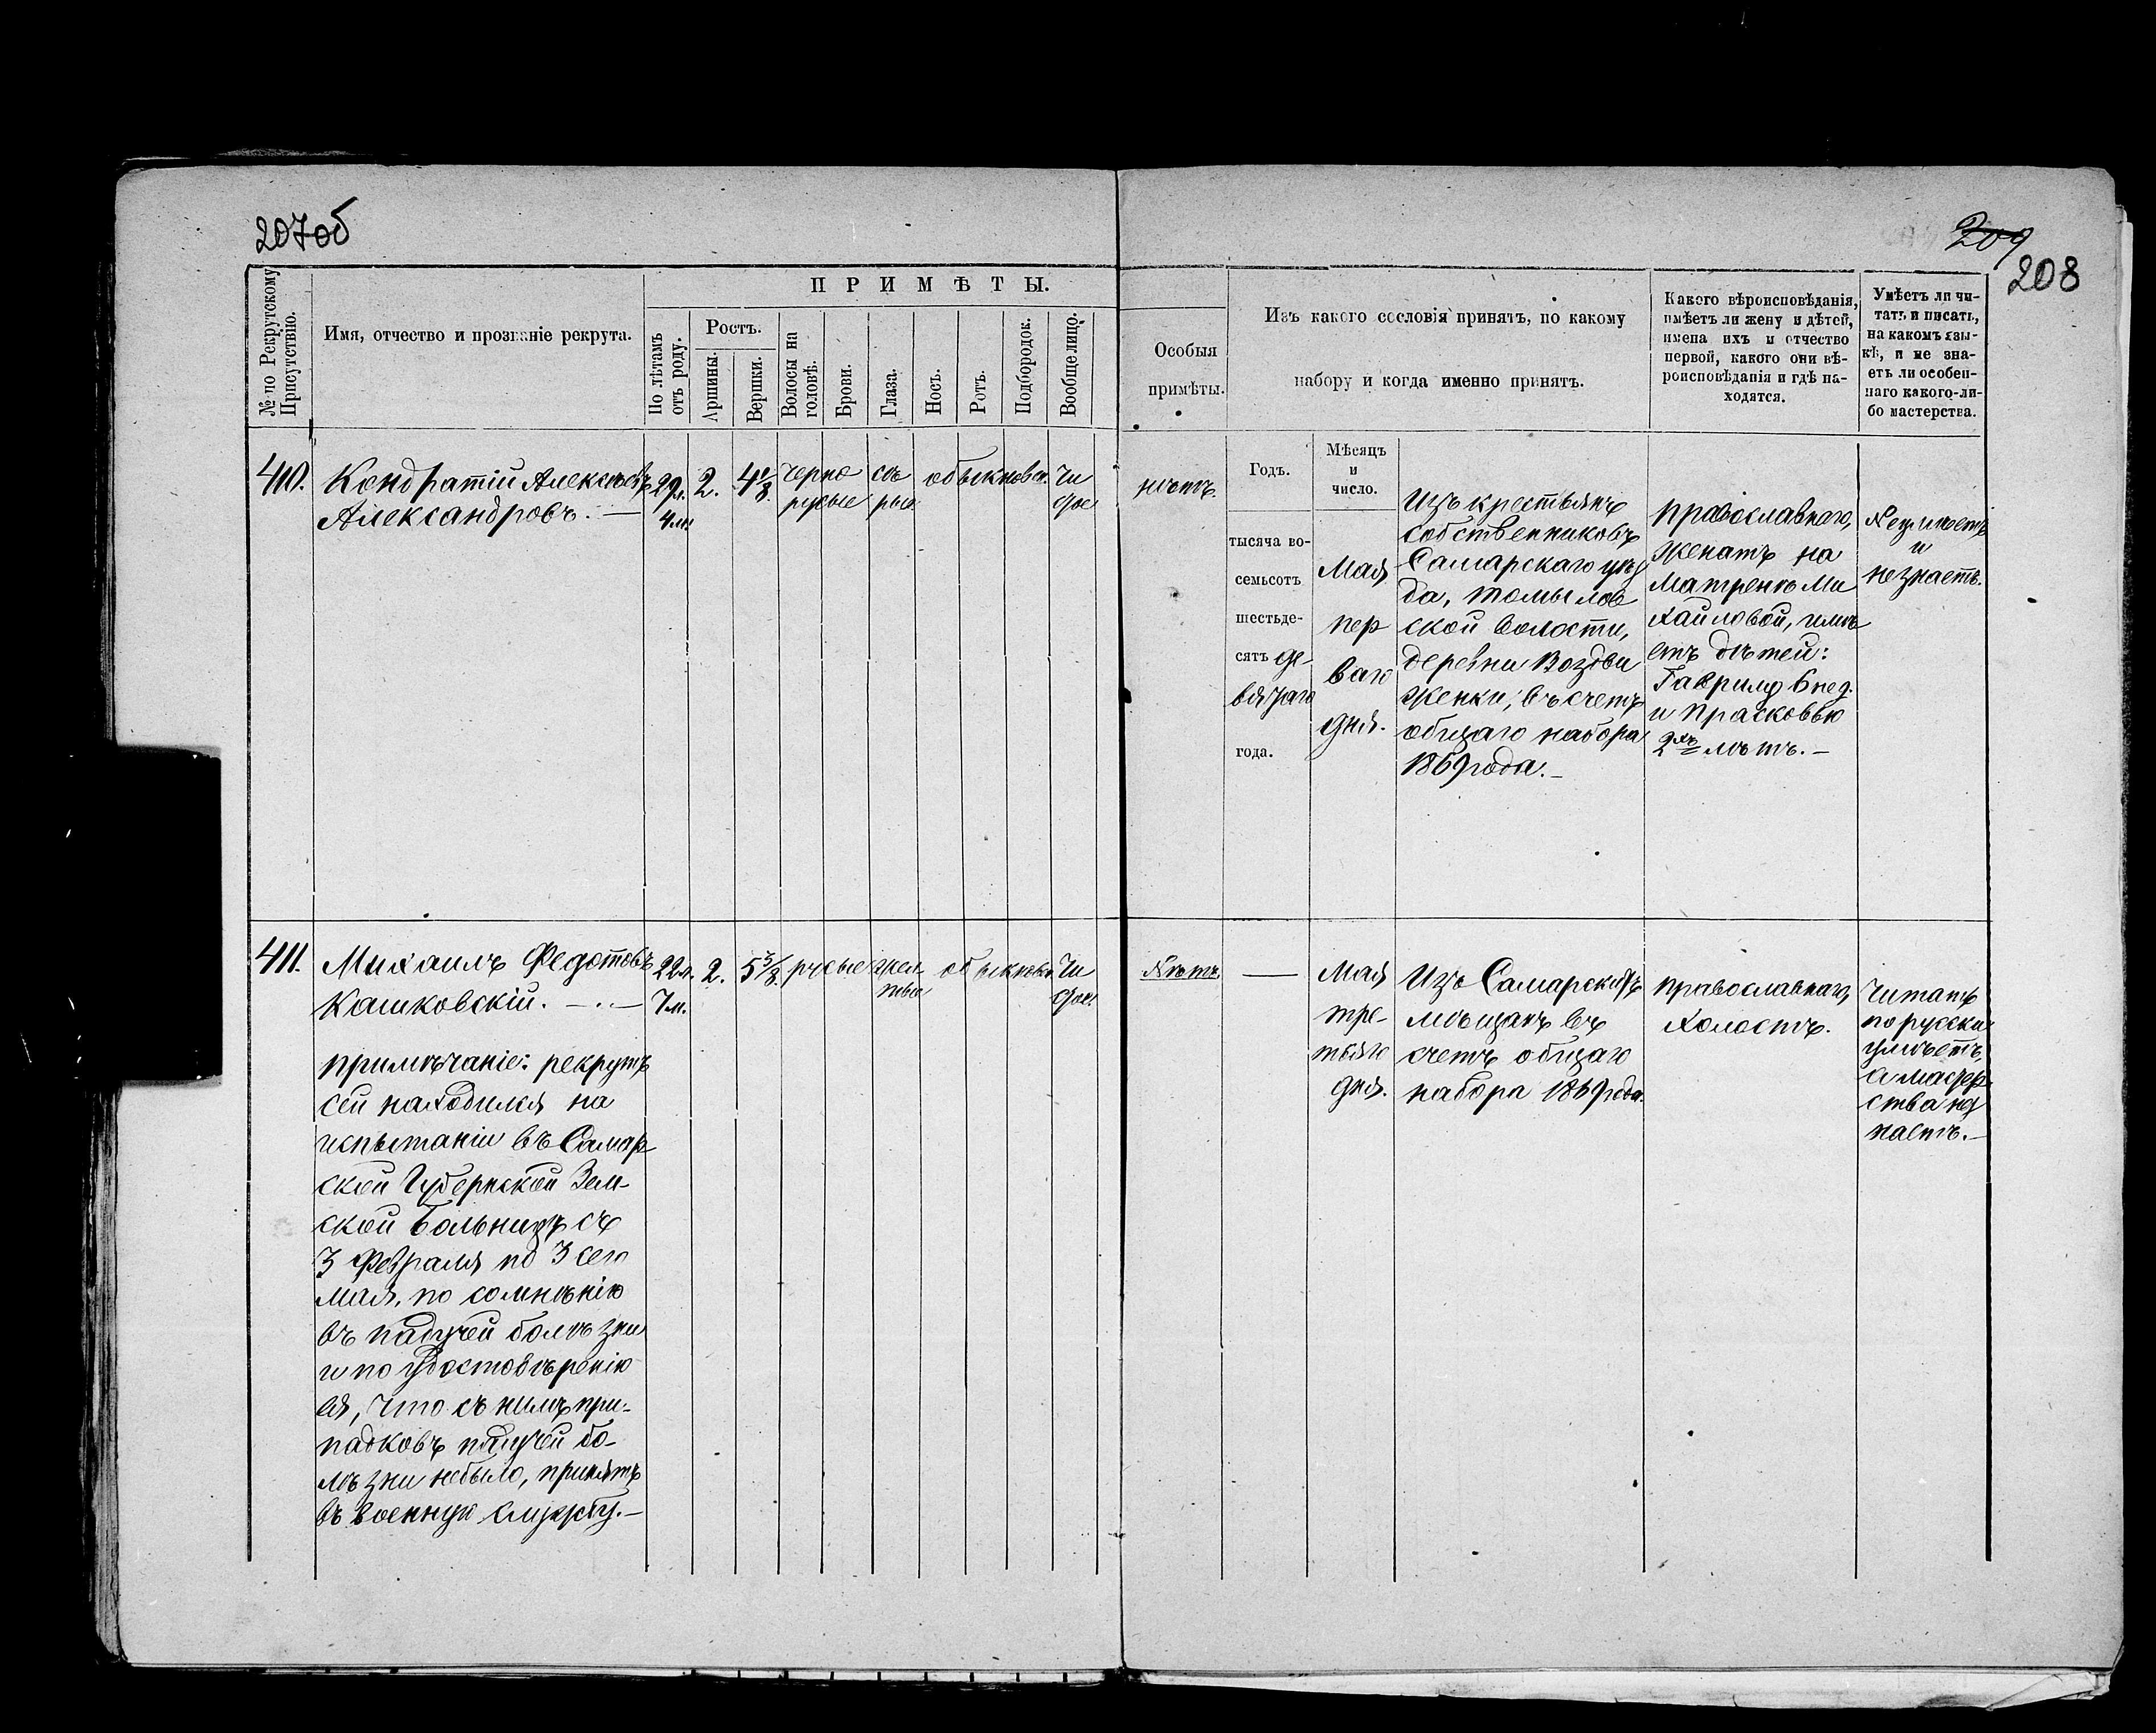 207об
209
208
№ по Рекрутскому
Присутствію.
Имя, отчество и прозваніе рекрута.
ПРИМѢТЫ.
По лѣтамъ
отъ роду.
Ростъ.
Аршины.
Вершки.
Волосы на
головѣ.
Брови.
Глаза.
Носъ.
Ротъ.
Подбородок.
Вообще лицо.
Особыя
примѣты.
Изъ какого сословія принятъ, по какому
набору и когда именно принятъ.
Какого вѣроисповѣданія,
имѣетъ ли жену и дѣтей,
имена ихъ и отчество
первой, какого они вѣ-
роисповѣданія и гдѣ на-
ходятся.
Умѣетъ ли чи-
тать и писать,
на какомъ язы-
кѣ, и не зна-
етъ ли особен-
наго какого-ли-
бо мастерства.
410.
Кондратій Алексѣевъ
Александровъ. —
29л.
4м.
2.
4 1/8.
черно
русые
сѣ
рые
обыкновен.
чи
стое
нѣтъ.
Годъ.
тысяча во-
семьсотъ
шестьде-
сятъ де-
вятаго
года.
Мѣсяцъ
и
число.
Мая
пер
ваго
дня.
Изъ крестьянъ
собственниковъ
Самарскаго уѣз
да, Томылов
ской волости,
деревни Воздви
женки, въ счетъ
общаго набора
1869 года. —
православнаго,
женатъ на
Матренѣ Ми
хайловой, имѣ
етъ дѣтей:
Гаврилу 6 нед.
и Прасковью
2хъ лѣтъ. —
Неумѣетъ
и
незнаетъ.
411.
Михаилъ Федотовъ
Кашковскій. —.—
примѣчаніе: рекрутъ
сей находился на
испытаніи въ Самар
ской Губернской Зем-
ской больницѣ съ
3 Февраля по 3 сего
Мая, по сомнѣнію
въ падучей болѣзни
и по удостовѣренію
ея, что съ нимъ при-
падковъ падучей бо-
лѣзни небыло, принятъ
въ военную службу. —
22л.
7м.
2.
5 5/8.
русые
обыкновен
чи
стое
Нѣтъ.
—
Мая
тре-
тьяго
дня.
Изъ Самарскихъ
мѣщанъ въ
счетъ общаго
набора 1869 года.
православнаго,
холостъ.
Читать
по русски
умѣетъ,
а мастер
ства нез
наетъ. —